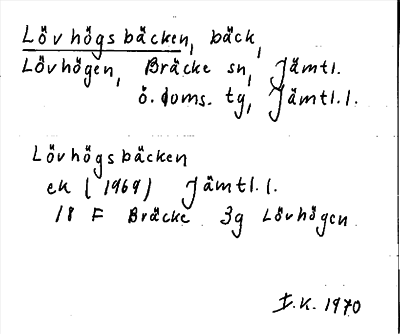 Lövhögsbäcken, bäck,
Lövhögen, Bräcke sn, Jämtl.
ö. doms. tg, Jämtl. l.
Lövhögsbäcken
ek (1969) Jämtl. l.
18 F Bräcke 3g Lövhögen
I.K. 1970